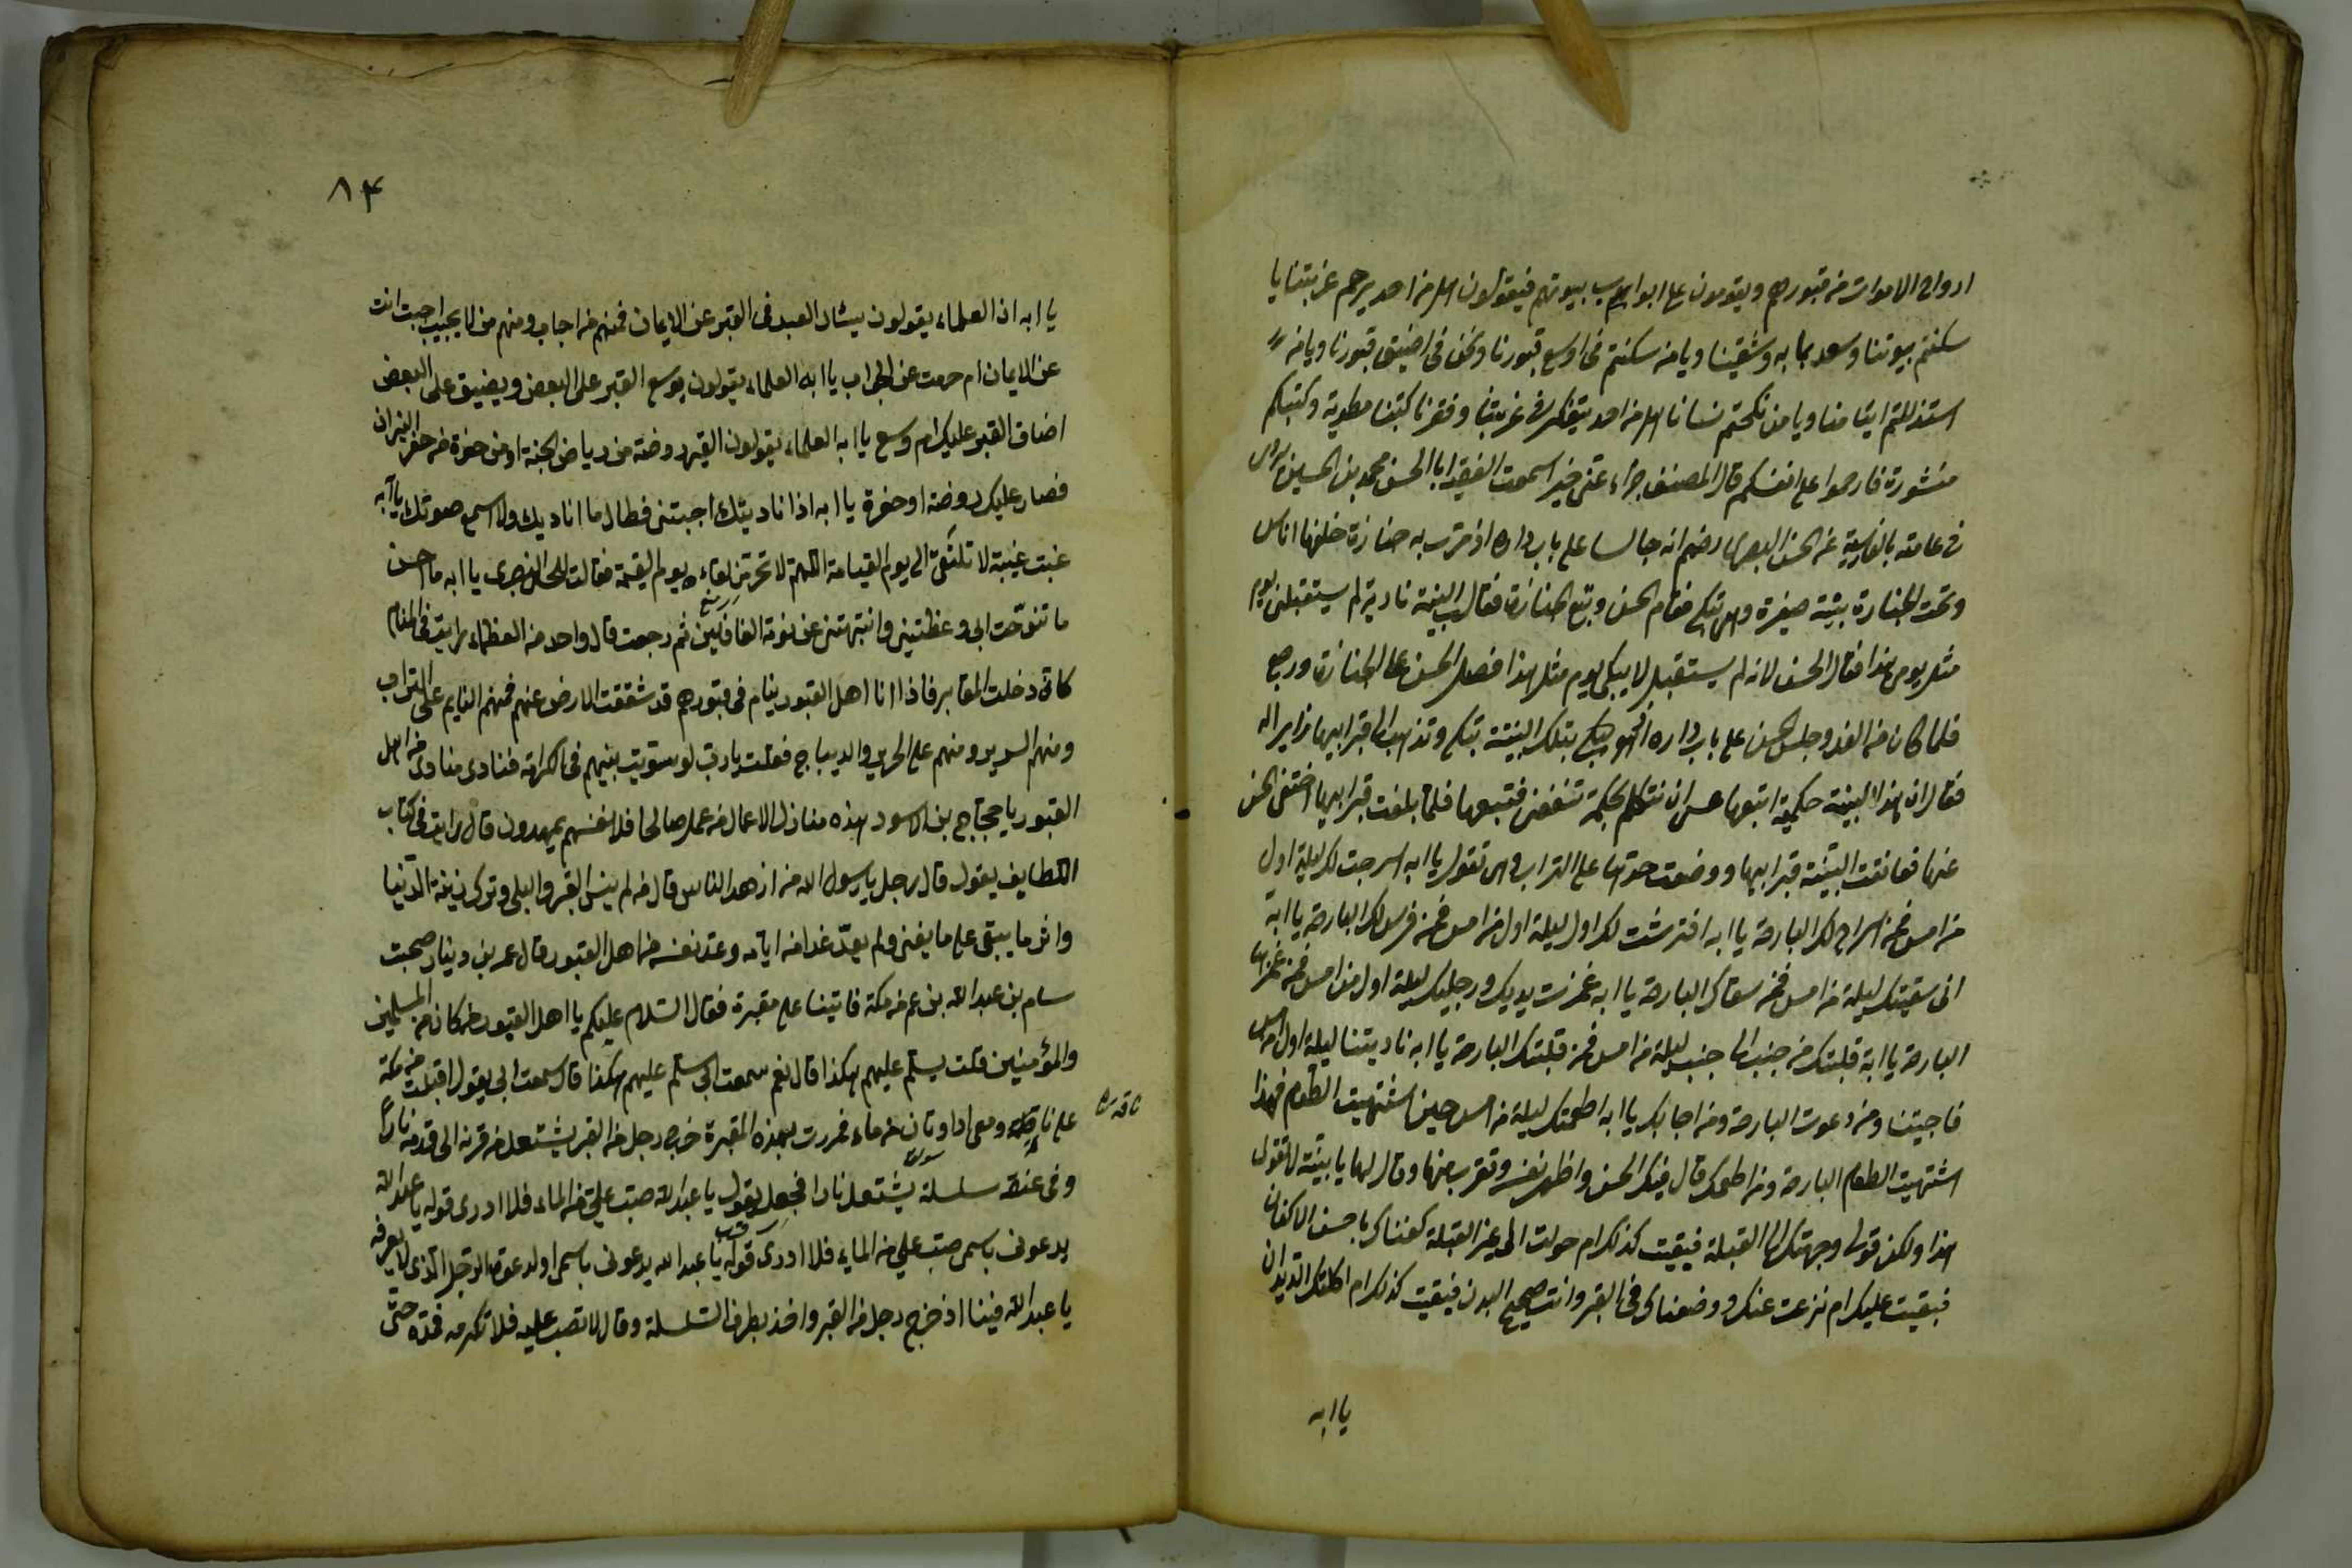 ارواح الاموات من قبورهم ويقومون على ابواب بيوتهم فيقولون هل من احد يرحم غربتنا يا
سكنتم بيوتنا وسعد بما به وشقينا ويا من سكنتم فى اوسع قبورنا ونحن فى اضيق قبورنا ويا من
استذللتم ايتامنا ويا من نكحتم نسانا هل من احد يتفكر فى غربتنا وفقرنا كتبنا مطوية وكتبكم
منشورة فارحموا على انفسكم قال المصنف جزاه عنى خير اسمعت الفقيه ابا الحسن محمد بن الحسين
فى عامته بالفارسية عن الحسن البصرى رضهم انه جالسا على باب داره اذ مرت به جنازة خلفها اناس
وتحت الجنازة بنية صغيرة وهى تبكى فقام الحسن وتبع الجنازة فقالت البنية نادية لم يستقبلنى يوم
مثل يومى هذا فقال الحسن لانه لم يستقبل لابيكى يوم مثل هذا فصلى الحسن على الجنازة ورجع
فلما كان من الغد وجلس الحسن على باب داره بتلك البنية تبكى وتذهب الى قبر ابيها زايرا له
فقال ان هذا البنية حكيمة اتبعها عسى ان تتكلم بحكمة تنفعنى فتبعها فلما بلغت قبر ابيها اختفى الحسن
عنها فعانقت البنية قبر ابيها ووضعت خدها على التراب وهى تقول يا ابه اسرجت لك ليلة اول
من امس فمن اسراج لك البارحة يا ابه افترشت لك اول ليلة اول من امس فمن فرش لك البارحة يا ابة
انى سقيتك ليلة من امس فمن سقاك البارحة يا ابه غمزت يديك ورجليك ليلة اول من امس فمن غمزها
البارحة يا ابة قلبتك من جنب الى جنب ليلة من امس فمن قلبتك البارحة يا ابه ناديتنا ليلة اول امس
فاجيتنا ومن دعوت البارحة ومن اجابك يا ابه اطعمتك ليلة من امس حين اشتهيت الطعام فهذا
اشتهيت الطعام البارحة ومن اطعمك قال فبكى الحسن واظهر نفسه وتقرب منها وقال لها يا بنية لا تقول
هذا ولكن قولى وجهتك الى القبلة فبقيت كذلك ام حولت الى غير القبلة كفناك باحسن الاكفان
فبقيت عليك ام نزعت عنك ووضعناك فى القبر وانت صحيح البدن فبقيت كذلك ام اكلتك الديدان
يا ابه
٨٣
يا ابه ان العلماء يقولون يسئال العبد فى القبر عن الايمان فمنهم من اجاب ومنهم من لا يجيب اجبت انت
عن الايمان ام حرمت عن الجواب يا ابه العلماء يقولون يوسع القبر على البعض ويضيق على البعض
اضاق القبر عليك ام وسع يا ابه العلماء يقولون القبر روضة من رياض الجنة او من حفرة من حفر النيران
فصار عليك روضة او حفرة يا ابه اذا ناديتك اجبتنى فطال ما اناديك ولا اسمع صوتك يا ابه
غبت غيبة لا تلتقى الى يوم القيامة اللهم لا تحرمنى لقاءه يوم القيمة فقالت للحسن البصرى يا ابه ما احسن
ما تنوحت ابى وعظتينى وانتبهتنى عن نومة الغافلين ثم رجعت قال واحد من العظماء رايت فى المنام
كانى دخلت المقابر فاذا انا اهل القبور ينام فى قبورهم قد شققت الارض عنهم فمنهم النايم على التراب
ومنهم السرير ومنهم على الحرير والديباج فقلت يا رب لو سويت بينهم فى الكرامة فنادى منادى من اهل
القبور يا حجاج بن الاسود هذه منازل الاعمال من عمل صالحا فلانفسهم يمهدون قال رايت فى كتاب
اللطايف يقول قال رجل يا رسول الله من ازهد الناس قال من لم ينس القبر والبلى وترك زينة الدنيا
واثر ما يبقى على ما يفنى ولم يعد غدا من ايامه وعد نفسه من اهل القبور قال عمر بن دينار صحبت
سام بن عبد الله بن عم من مكة فاتينا على مقبرة فقال السلام عليكم يا اهل القبور من كان من المسلمين
والمؤمنين قلت يسلم عليهم هكذا قال نعم سمعت ابى سلم عليهم هكذا قال سمعت ابى يقول اقبلت من مكة
على ناقة ومعى اداوتان من ماء فمررت بهذه المقبرة خرج رجل من القبر يشتعل من قرنه الى قدمه نارا
ناقة
وفى عنقه سلسلة يشتعل نارا فجعل يقول يا عبد الله صب على من الماء فلا ادرى قوله يا عبد الله
يدعونى باسمى صب على من الماء فلا ادرى قوله يا عبد الله يدعونى باسمى او لدعوة الرجل الذى لا يعرفه
يا عبد الله فبينا اذ خرج رجل من القبر واخذ بطرف السلسلة وقال لا تصب عليه فلا تكرمه فمده حتى